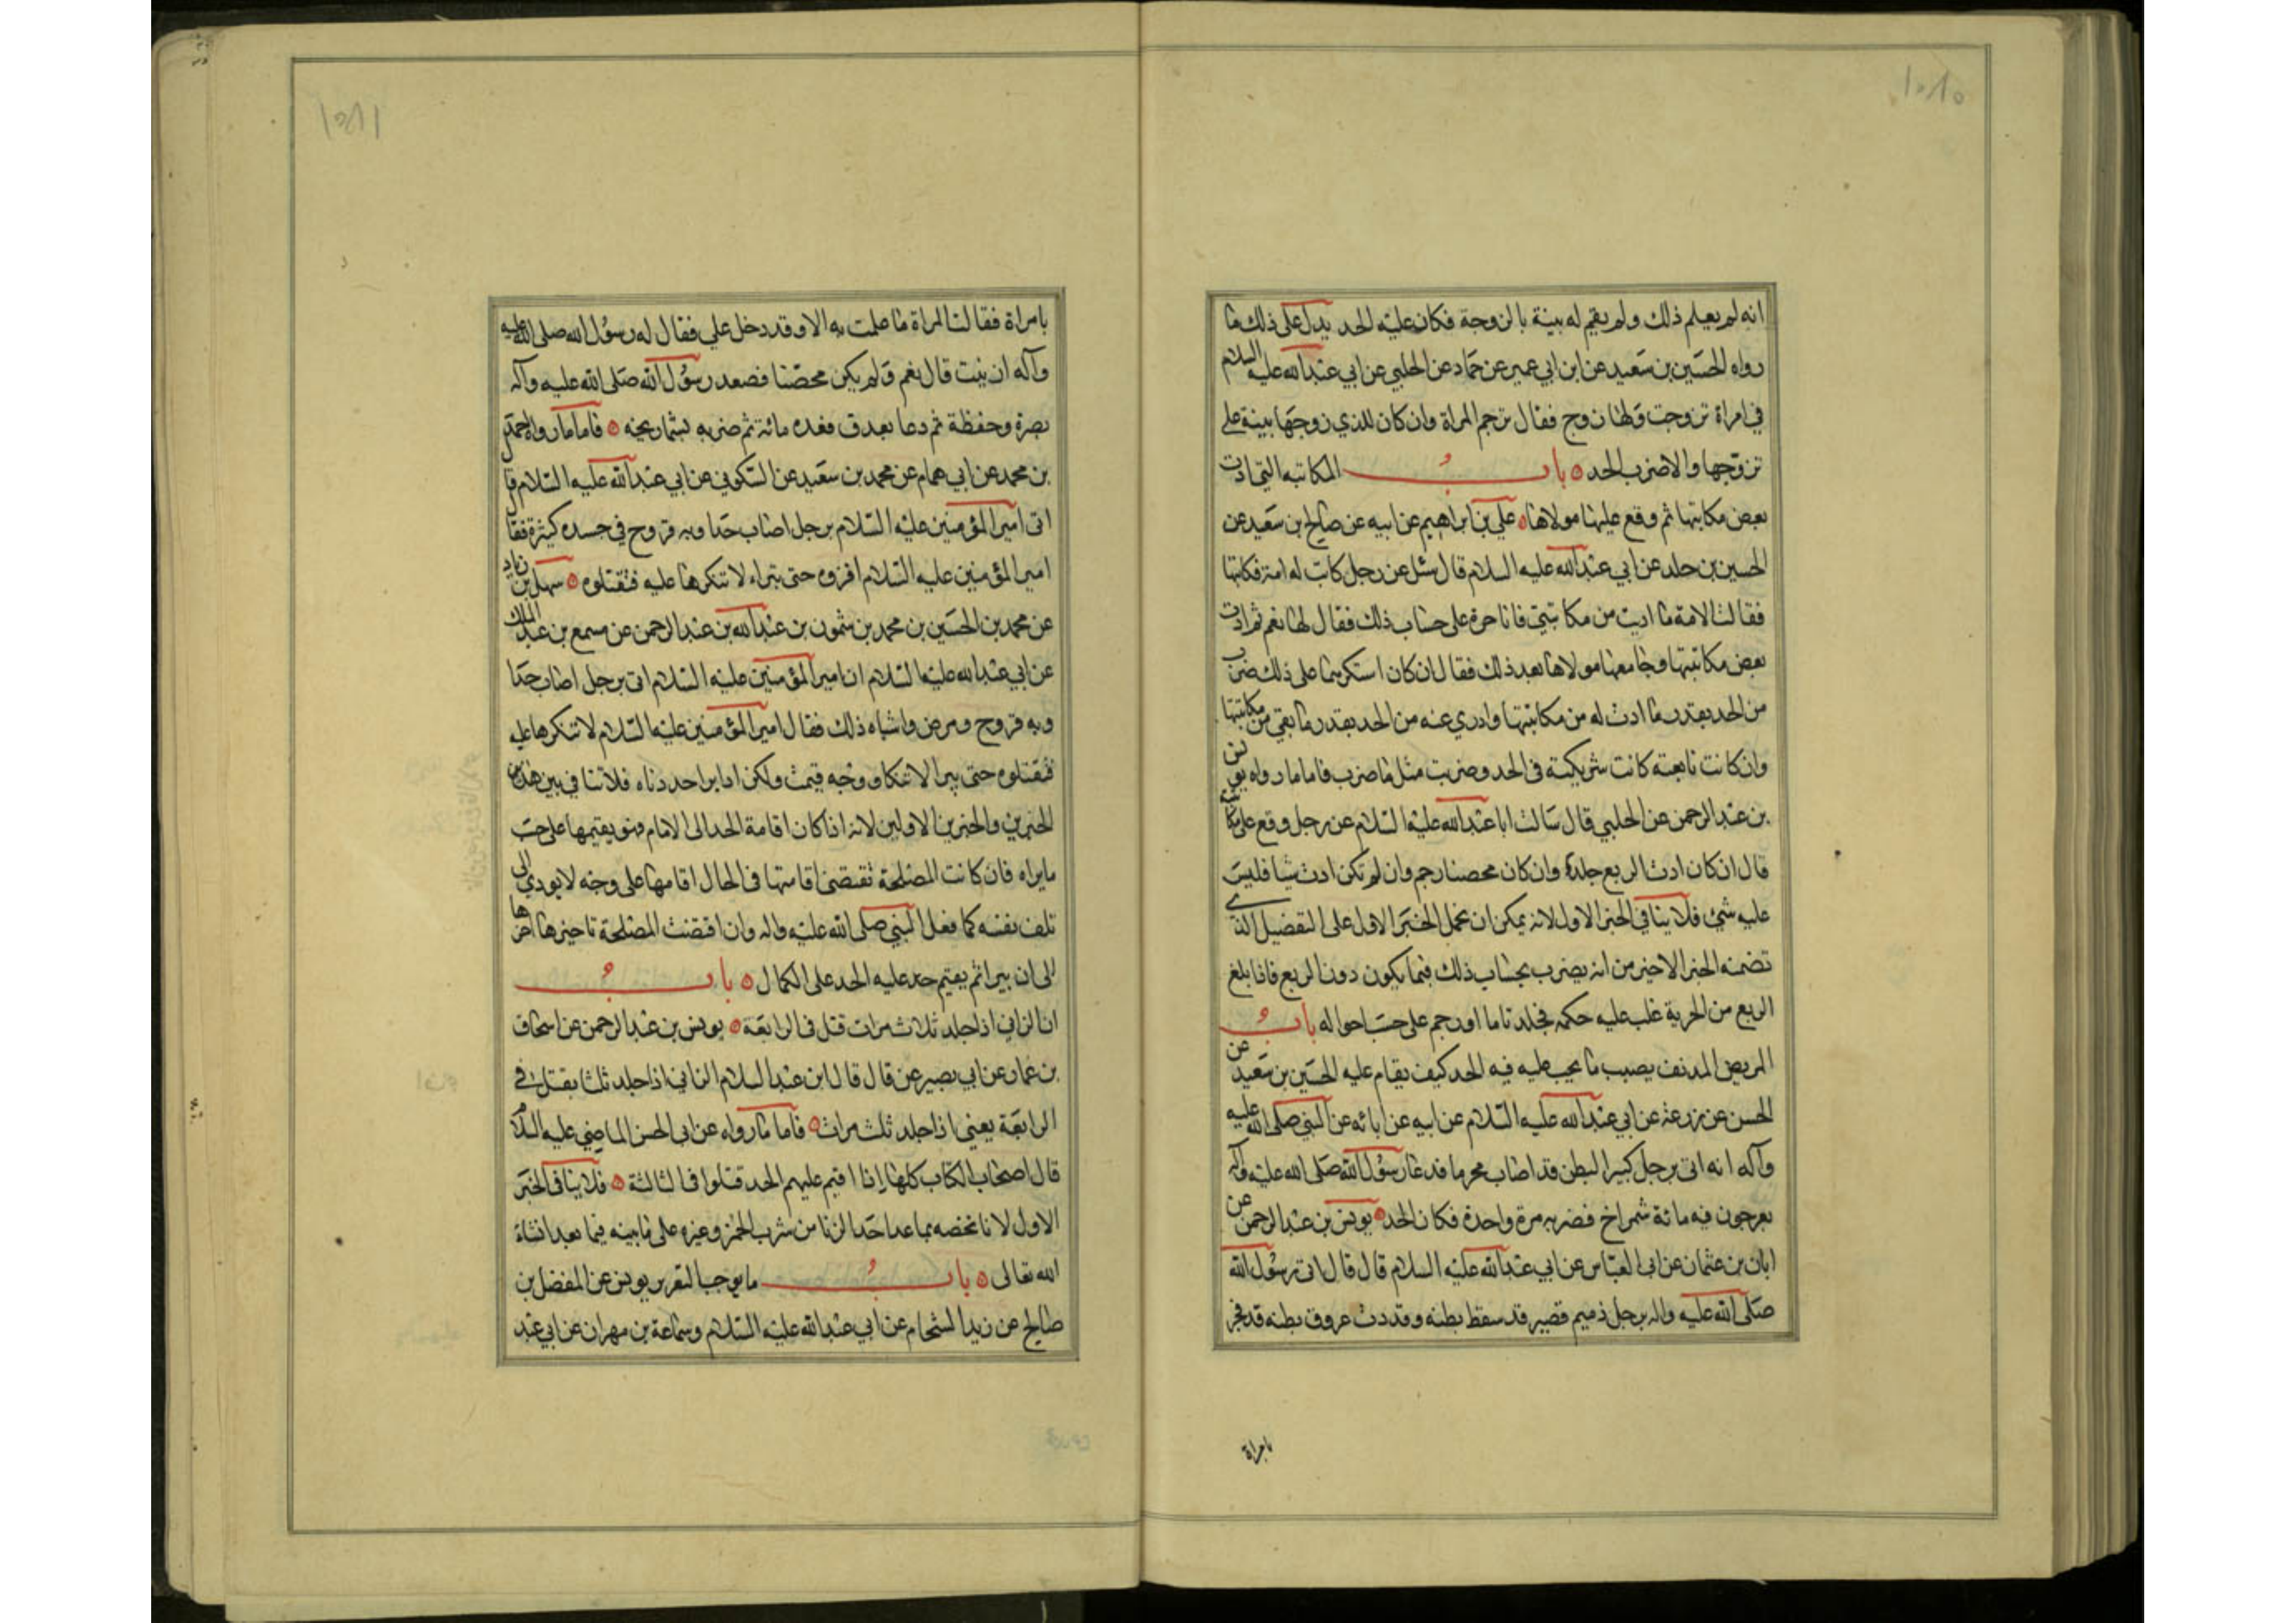 انه لم يعلم ذلك ولم يقم له بينة بالزوجة فكان عليه الحد يدل على ذلك ما
رواه الحسين بن سعيد عن ابن ابي عمير عن حماد عن الحلبي عن ابي عبد الله عليه السلام
في امراة تزوجت ولها زوج فقال ترجم المراة وان كان للذي زوجها بينة على
تزوجها والا ضرب الحد ٥ باب المكاتبه التي ادت
بعض مكاتبتها ثم وقع عليها مولاها ٥ علي بن ابراهيم عن ابيه عن صالح بن سعيد عن
الحسين بن خلد عن ابي عبد الله عليه السلام قال سئل عن رجل كانت له امة فكاتبها
فقالت الامة ما اديت من مكاتبتي فانا حرة على حساب ذلك فقال لها نعم فادت
بعض مكاتبتها وجامعها مولاها بعد ذلك فقال ان كان استكرهها على ذلك ضرب
من الحد بقدر ما ادت له من مكاتبتها وادري عنه من الحد بقدر ما بقي من مكاتبتها
وان كانت تابعته كانت شريكته في الحد وضربت مثل ما ضرب فاما ما رواه يونس
بن عبد الرحمن عن الحلبي قال سالت ابا عبد الله عليه السلام عن رجل وقع على مكاتبته
قال ان كان ادت الربع جلد وان كان محصنا رجم وان لم تكن ادت شيا فليس
عليه شئ فلا ينافي الخبر الاول لانه يمكن ان نحمل الخبر الاول على التفضيل الذي
تضمنه الخبر الاخير من انه يضرب بحساب ذلك فيما يكون دون الربع فاذا بلغ
الربع من الحرية غلب عليه حكمه فجلد تاما او رجم على حسب احواله باب
المريض المدنف يصيب ما يجب عليه فيه الحد كيف يقام عليه الحسين بن سعيد عن
الحسن عن زرعة عن ابي عبد الله عليه السلام عن ابيه عن ابائه عن النبي صلى الله عليه
وآله انه اتى برجل كبير البطن قد اصاب محرما فدعا رسول الله صلى الله عليه وآله
بعرجون فيه مائة شمراخ فضربه مرة واحدة فكان الحد ٥ يونس بن عبد الرحمن عن
ابان بن عثمان عن ابي العباس عن ابي عبد الله عليه السلام قال قال اتى رسول الله
صلى الله عليه واله برجل ذميم قصير قد سقط بطنه وقد دت عروق بطنه قد فجر
بامراة
بامراة فقالت المراة ما علمت به الا وقد دخل علي فقال له رسول الله صلى الله عليه
وآله ان نيت قال نعم ولم يكن محصنا فصعد رسول الله صلى الله عليه وآله
بصرة وحفظة ثم دعا بعدق فعده مائة ثم ضربه بشماريخه ٥ فاما ما رواه احمد
بن محمد عن ابي همام عن محمد بن سعيد عن السكوني عن ابي عبد الله عليه السلام قال
اتى امير المؤمنين عليه السلام برجل اصاب حدا وبه قروح في جسده كثيرة فقال
امير المؤمنين عليه السلام اقروه حتى يتراء لا تنكرها عليه فتقتلوه ٥ سهل بن زياد
عن محمد بن الحسين بن محمد بن شمون بن عبد الله بن عبد الرحمن عن مسمع بن عبد الملك
عن ابي عبد الله عليه السلام ان امير المؤمنين عليه السلام اتى برجل اصاب حدا
وبه قروح ومرض واشباه ذلك فقال امير المؤمنين عليه السلام لا تنكرها عليه
فتقتلوه حتى يبرا لا تنكاو وجه قيمت ولكن اذا برا حددناه فلا تنافي بين هذين
الخبرين والخبرين الاولين لانه اذا كان اقامة الحد الى الامام فهو يقيمها على حسب
مايراه فان كانت المصلحة تقتضى اقامتها في الحال اقامها على وجه لا يودي الى
تلف نفسه كما فعل النبي صلى الله عليه واله وان اقتضت المصلحة تاخيرها اخرها
الى ان يبرا ثم يقيم حد عليه الحد على الكمال ٥ باب
ان الزاني اذا جلد ثلاث مرات قتل في الرابعة ٥ يونس بن عبد الرحمن عن اسحاق
بن عمار عن ابي بصير عن قال قال ابن عبد السلام الزاني اذا جلد ثلثا يقتل في
الرابعة يعني اذا جلد ثلث مرات ٥ فاما ما رواه عن ابي الحسن الماضي عليه السلام
قال اصحاب الكتاب كلها اذا اقيم عليهم الحد قتلوا في الثالثة ٥ فلا ينافي الخبر
الاول لانا نخصه بما عدا حد الزنا من شرب الخمر وغيره على ما بينه فيما بعد انشاء
الله تعالى ٥ باب ما يوجب التعزير يونس عن المفضل بن
صالح عن زيد الشحام عن ابي عبد الله عليه السلام وسماعة بن مهران عن ابي عبد